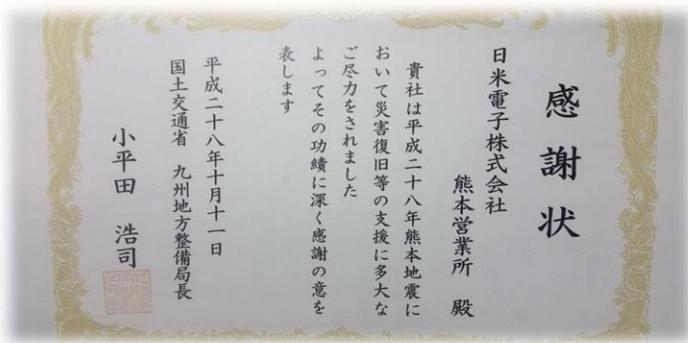 感謝状
日米電子株式会社
熊本営業所 殿
貴社は平成二十八年熊本地震に
おいて災害復旧等の支援に多大な
ご尽力をされました
よってその功績に深く感謝の意を
表します
平成二十八年十月十一日
国土交通省 九州地方整備局長
小平田 浩司